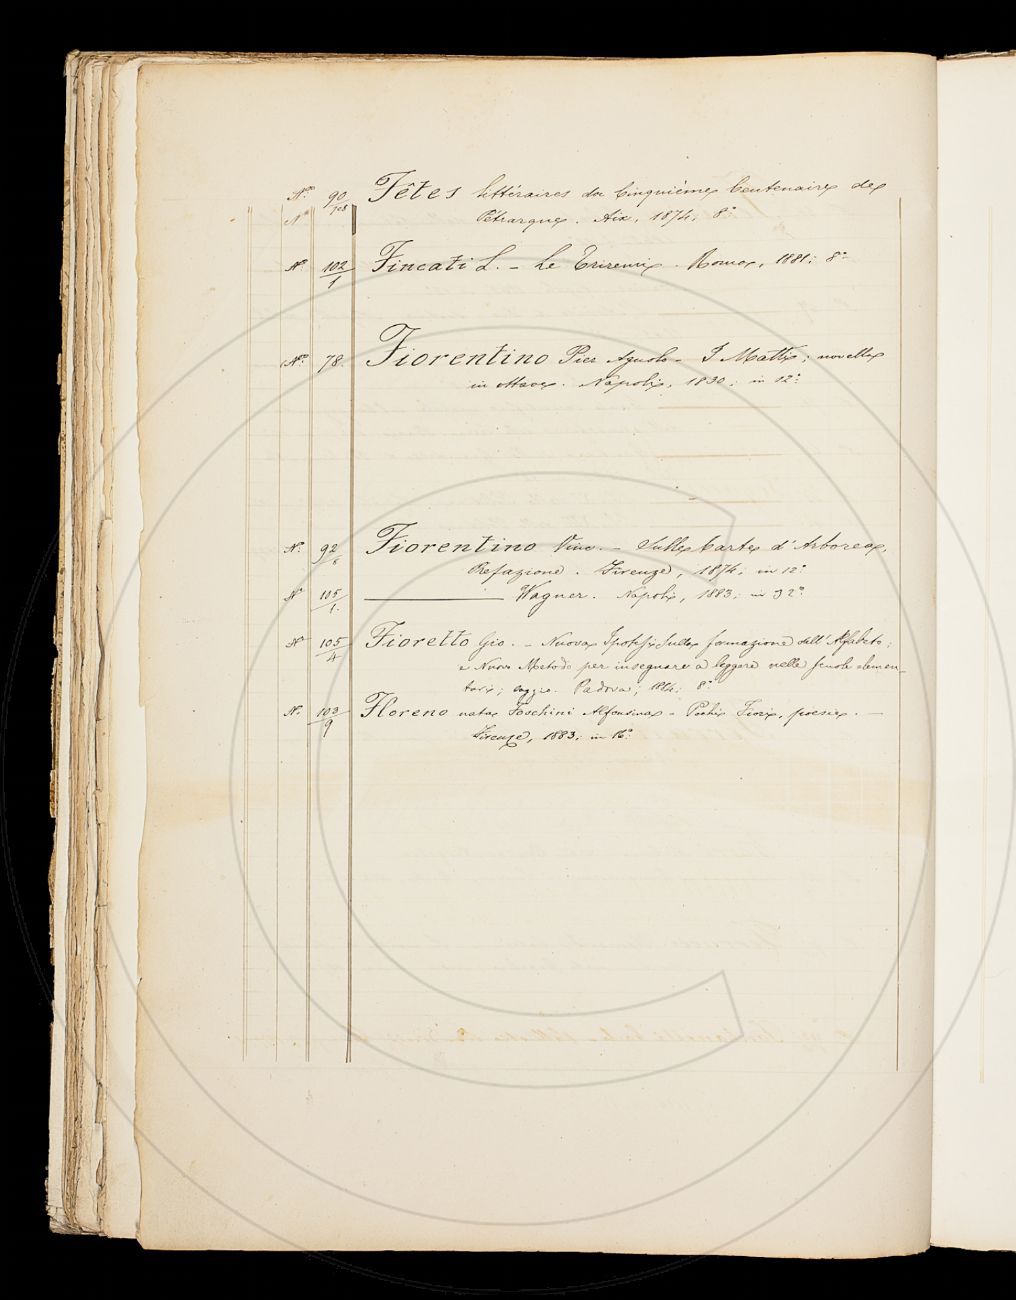 N.° 90/108 Fêtes littéraires du Cinquième Centenaire de
N° Pétrarque. Aix, 1874; 8°
N° 102/1 Fincati L. - Le Triremi. Roma, 1881; 8°
N.° 78. Fiorentino Pier Agnolo - I Matti; novella
in ottava. Napoli, 1830; in 12°
N.° 92/6 Fiorentino Vinc. - Sulle Carte d'Arborea,
Refazione. Firenze, 1874; in 12°
N° 105/1. Wagner. Napoli, 1883; in 32°
N° 105/4 Fioretto Gio. - Nuova Ipotesi sulla formazione dell'Alfabeto;
e Nuovo Metodo per insegnare a leggere nelle scuole elemen-
tari; saggio. Padova; 8°
N.° 103/9 Floreno nata Foschini Alfonsina - Pochi Fiori, poesie. —
Firenze, 1883; in 16°